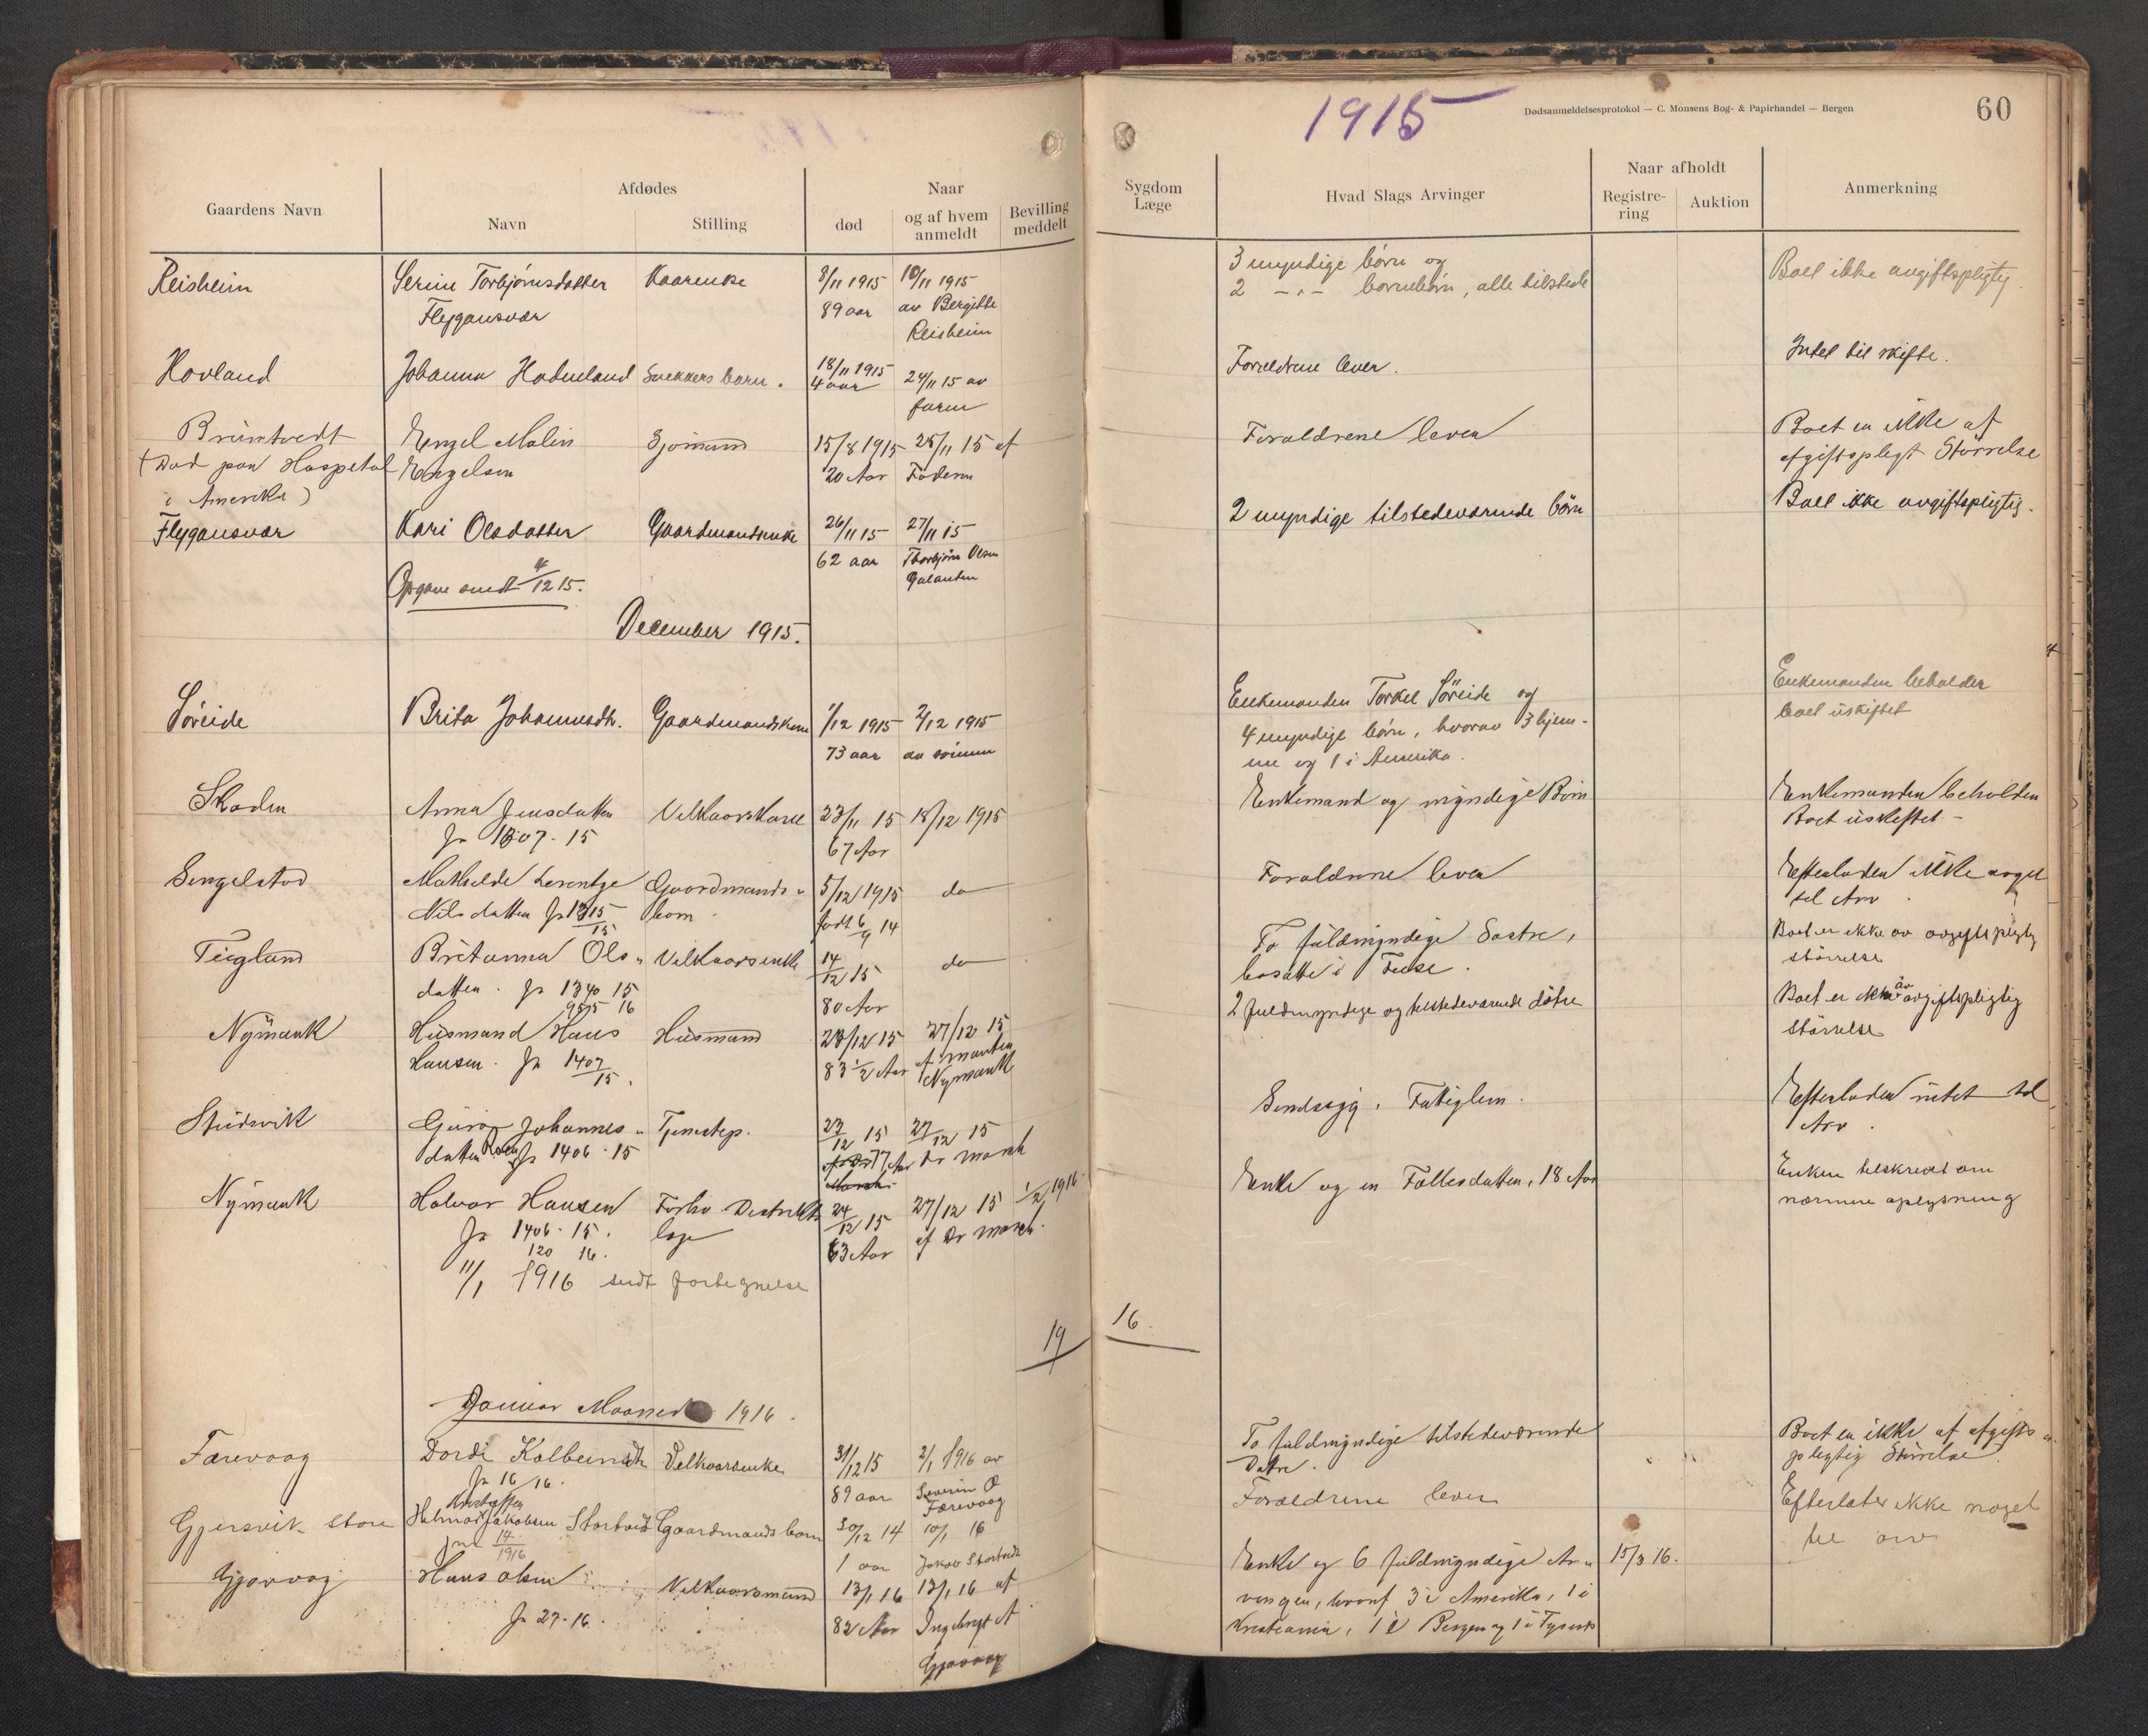 1915
Dødsanmeldelsesprotokol — C. Monsens Bog- & Papirhandel — Bergen
60
Gaardens Navn
Afdødes
Navn
Stilling
Naar
død
og af hvem anmeldt
Bevilling meddelt
Sygdom
Læge
Hvad Slags Arvinger
Naar afholdt
Registre-
ring
Auktion
Anmerkning
Reisheim Serine Torbjørnsdatter Kaarenke 8/11 1915 10/11 1915 3 myndige børn og Boet ikke avgiftspligtig.
Flygansvær 89 aar av Bergitte 2 -"- børnebørn, alle tilstede
Reisheim
Hovland Johanna Hadneland Snekkers barn. 18/11 1915 Forældrene lever. Intet til skifte.
4 aar 24/11 15 av
faren
Brüntvedt Engel Malin Sjømand 15/8 1915 25/11 15 af Forældrene lever Boet er ikke af
(Død paa Hospetal Engelsen 20 Aar Faderen afgiftspligt Størrelse
i Amerika)
Flygansvær Kari Olsdatter Gaardmandsenke 26/11 15 27/11 15 2 myndige tilstedeværende børn Boet ikke avgiftspligtig.
62 aar Thorbjørn Olsen
Opgave sendt 4/12 15. Galanten
December 1915.
Søreide Brita Johannesdtr. Gaardmandskone 1/12 1915 2/12 1915 Enkemanden Torkel Søreide og Enkemanden beholder
73 aar av sønnen 4 myndige børn, hvorav 3 hjem- boet uskiftet
me og 1 i Amerika.
Skaden Anna Jensdatter Velkaarskone 23/11 15 18/12 1915 Enkemand og myndige Børn Enkemanden beholder
Jr 1307-15 67 Aar Boet uskeftet -
Sengelstad Mathelde Lerentze Gaardmands- 5/12 1915 do Forældrene lever Efterladen ikke noget
Nilsdatter Jr 1315/15 barn født 6/9 14 tel Arv.
Teigland Britanna Ols- Velkaarsenke 14/12 15 do To fuldmyndige Søstre, Boet er ikke av avgeftspligtig
datter. Jr 1340 15 80 Aar bosatte i Fuse. størrelse
955 16
Nymark Husmand Hans Husmand 23/12 15 27/12 15 2 fuldmyndige og telstedeværende døtre Boet er ikke av avgiftspligtig
Hansen. Jr 1407/15. 83 1/2 Aar af Nymark størrelse
Studsvik Guro Johannes- Tjenstep. 23/12 15 27/12 15 Sindssyg. Fattiglem. Efterladen intet tel
datter Jr 1406-15 77 Aar Dr March Arv.
Nymark Halvor Hansen Forhv. Destrikts 24/12 15 27/12 15 1/2 1916 Enke og en Fællesdatter, 18 Aar Enken telskrevet om
Jr 1406-15. læge 63 Aar af Dr March. nærmere oplysning
120 16.
11/1 1916 sendt fortegnelse
19 16.
Januar Maaned 1916.
Færevaag Dordi Kolbeinsdtr Velkaarsenke 31/12 15 2/1 1916 av To fuldmyndige telstedeværende Boet er ikke af afgefts-
Jr 16/16. 89 aar Severin O Døtre. plegtig Størrelse
Færevaag
Gjersvik store Helmar Kristoffer Jakobsen Stortveit Gaardmandsbarn 30/12 14 10/1 16 Forældrene lever Efterlater ikke noget
jnr 14/1916 1 aar Jakob Stortveit til arv
Gjøvaag Hans Olsen Velkaarsmand 13/1 16 13/1 16 af Enke og 6 fuldmyndige Ar- 15/3 16.
Jr 27-16. 82 Aar Ingebregt A vingen, hvoraf 3 i Amerika, 1 i
Gjøvaag Krestiania, 1 i Bergen og 1 i Tysnes